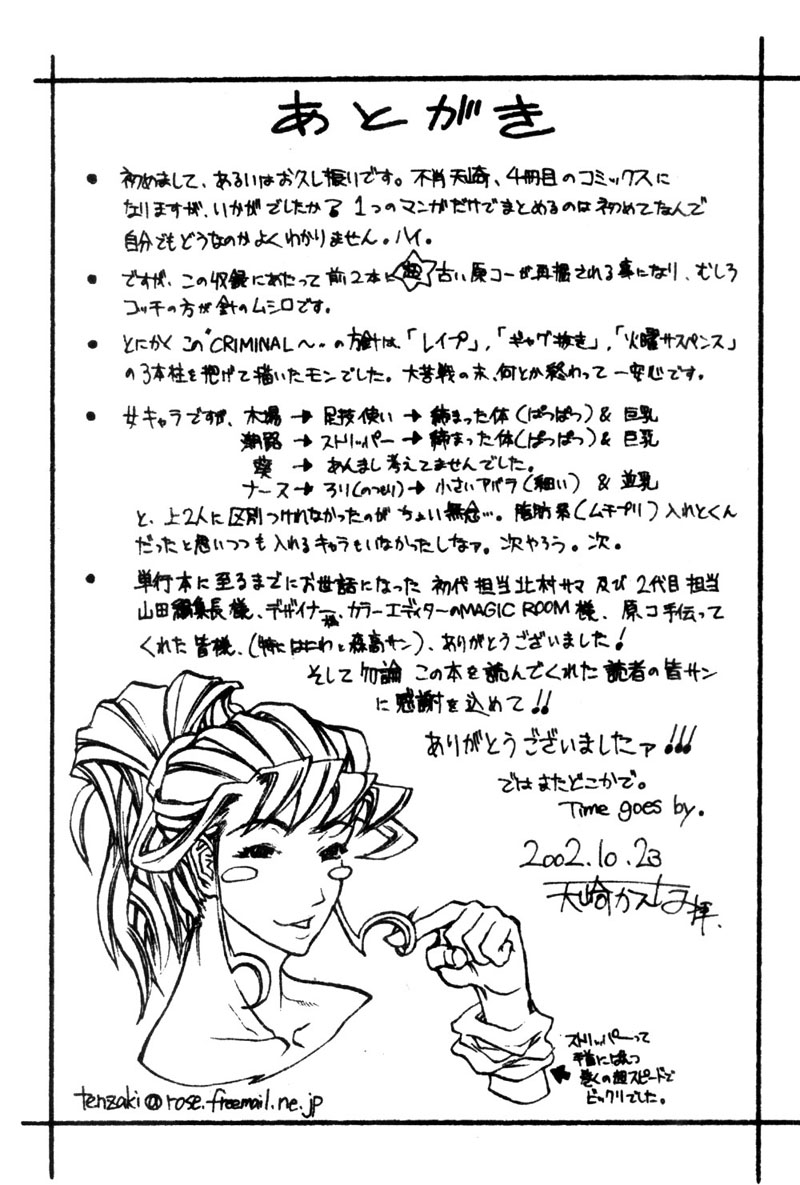 あとがき
• 初めまして、あるいはお久し振りです。不肖天崎、4冊目のコミックスに
なりますが、いかがでしたか？ 1つのマンガだけでまとめるのは初めてなんで
自分でもどうなのかよくわかりません。ハイ。
• ですが、この収録にあたって前2本に超古い原コーが再掲される事になり、むしろ
コッチの方が針のムシロです。
• とにかくこの"CRIMINAL〜"の方針は、「レイプ」,「ギャグ抜き」,「火曜サスペンス」
の3本柱を掲げて描いたモンでした。大苦戦の末、何とか終わって一安心です。
• 女キャラですが、木場 → 足技使い → 締まった体(ぱっぱつ) & 巨乳
潮路 → ストリッパー → 締まった体(ぱっぱつ) & 巨乳
葵 → あんまし考えてませんでした。
ナース → ろり(のつもり) → 小さいアバラ(細い) & 並乳
と、上2人に区別つけれなかったのがちょい無念…。脂肪系(ムチプリ)入れとくん
だったと思いつつも入れるキャラもいなかったしなァ。次やろう。次。
• 単行本に至るまでにお世話になった 初代担当北村サマ 及び 2代目担当
山田編集長様、デザイナー様、カラーエディターのMAGIC ROOM様、原コ手伝って
くれた皆様、(特にはにわと森高サン)、ありがとうございました!
そして勿論 この本を読んでくれた読者の皆サン
に感謝を込めて!!
ありがとうございましたァ!!!
ではまたどこかで。
Time goes by.
2002.10.23
天崎かんな 拝.
ストリッパーって
手首にぱんつ
巻くの超スピードで
ビックリでした。
tenzaki@rose.freemail.ne.jp